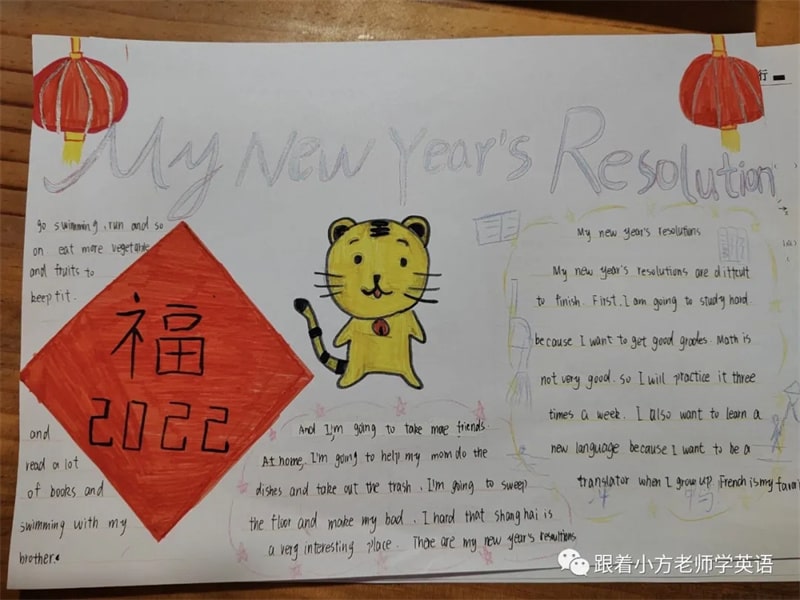 行
My New Year's Resolution
go swimming, run and so
on eat more vegetable
and fruits to
keep fit.
福
2022
and
read a lot
of books and
swimming with my
brother.
And I'm going to take mae friends
At home. I'm going to help my mom do the
dishes and take out the trash. I'm going to sweep
the floor and make my bad. I hard that shang hai is
a very interesting place. There are my new year's resultions
My new year's resolutions
My new year's resolutions are difficult
to finish. First. I am going to study hard
because I want to get good grades. Math is
not very good. so I will practice it three
times a week. I also want to learn a
new language because I want to be a
translator when I grow up. French is my favori
跟着小方老师学英语